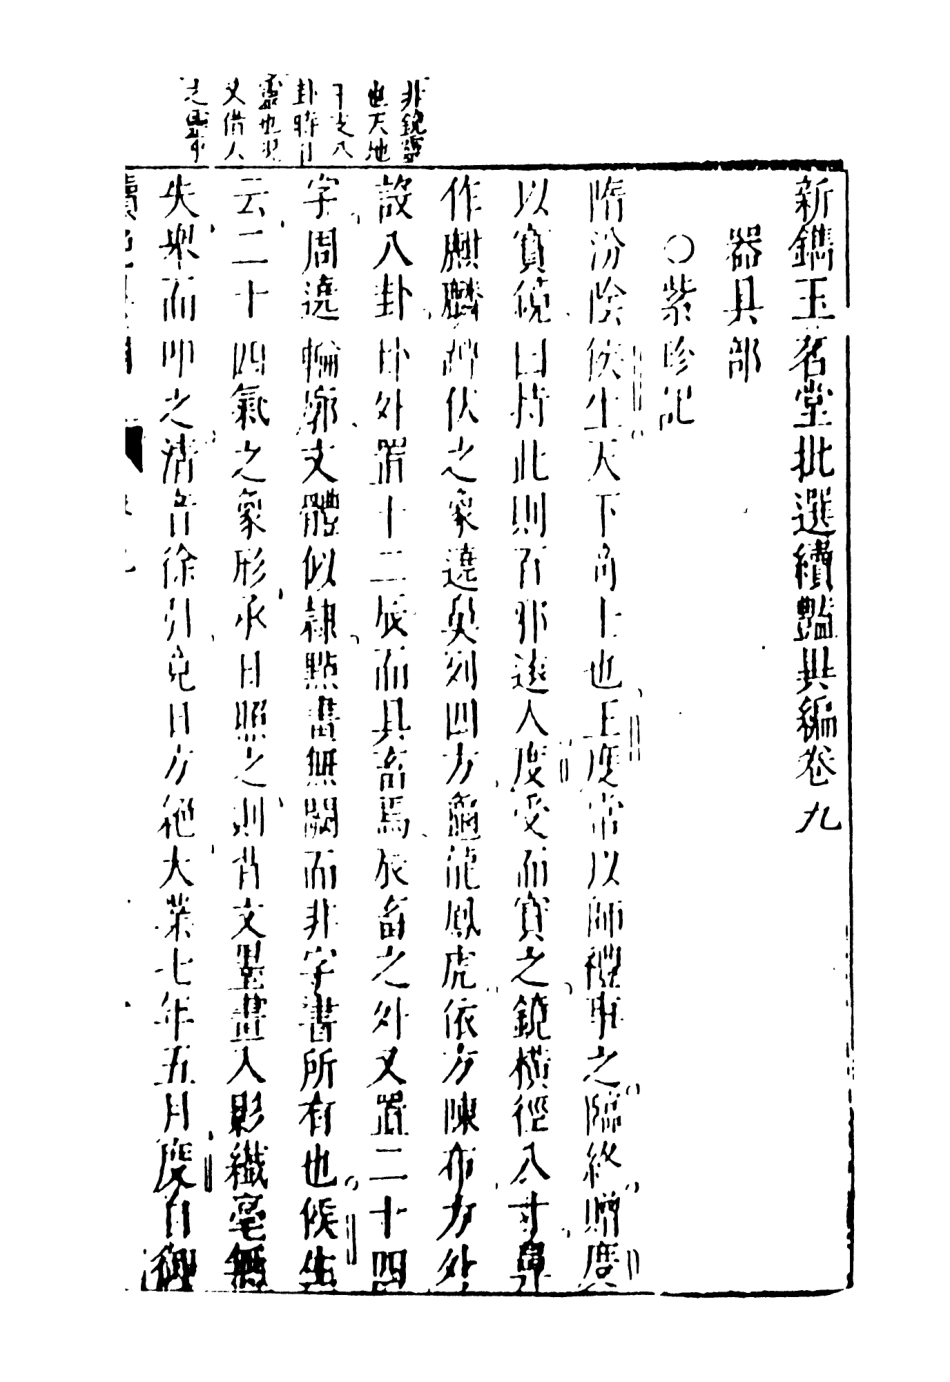 新鐫玉茗堂批選續豔異編卷九
器具部
○紫珍記
隋汾陰侯生天下奇士也王度常以師禮事之臨終贈度
以寶鏡曰持此則百邪遠人度受而寶之鏡橫徑八寸鼻
作麒麟蹲伏之象遶鼻列四方龜龍鳳虎依方陳布方外
設八卦卦外置十二辰而具畜焉辰畜之外又置二十四
字周遶輪廓文體似隸點畫無闕而非字書所有也侯生
云二十四氣之象形承日照之則背文墨畫入影纖毫無
失舉而叩之清音徐引竟日方絕大業七年五月度自御
非鏡靈
也天地
干支八
卦時日
靈也況
又借人
之靈乎